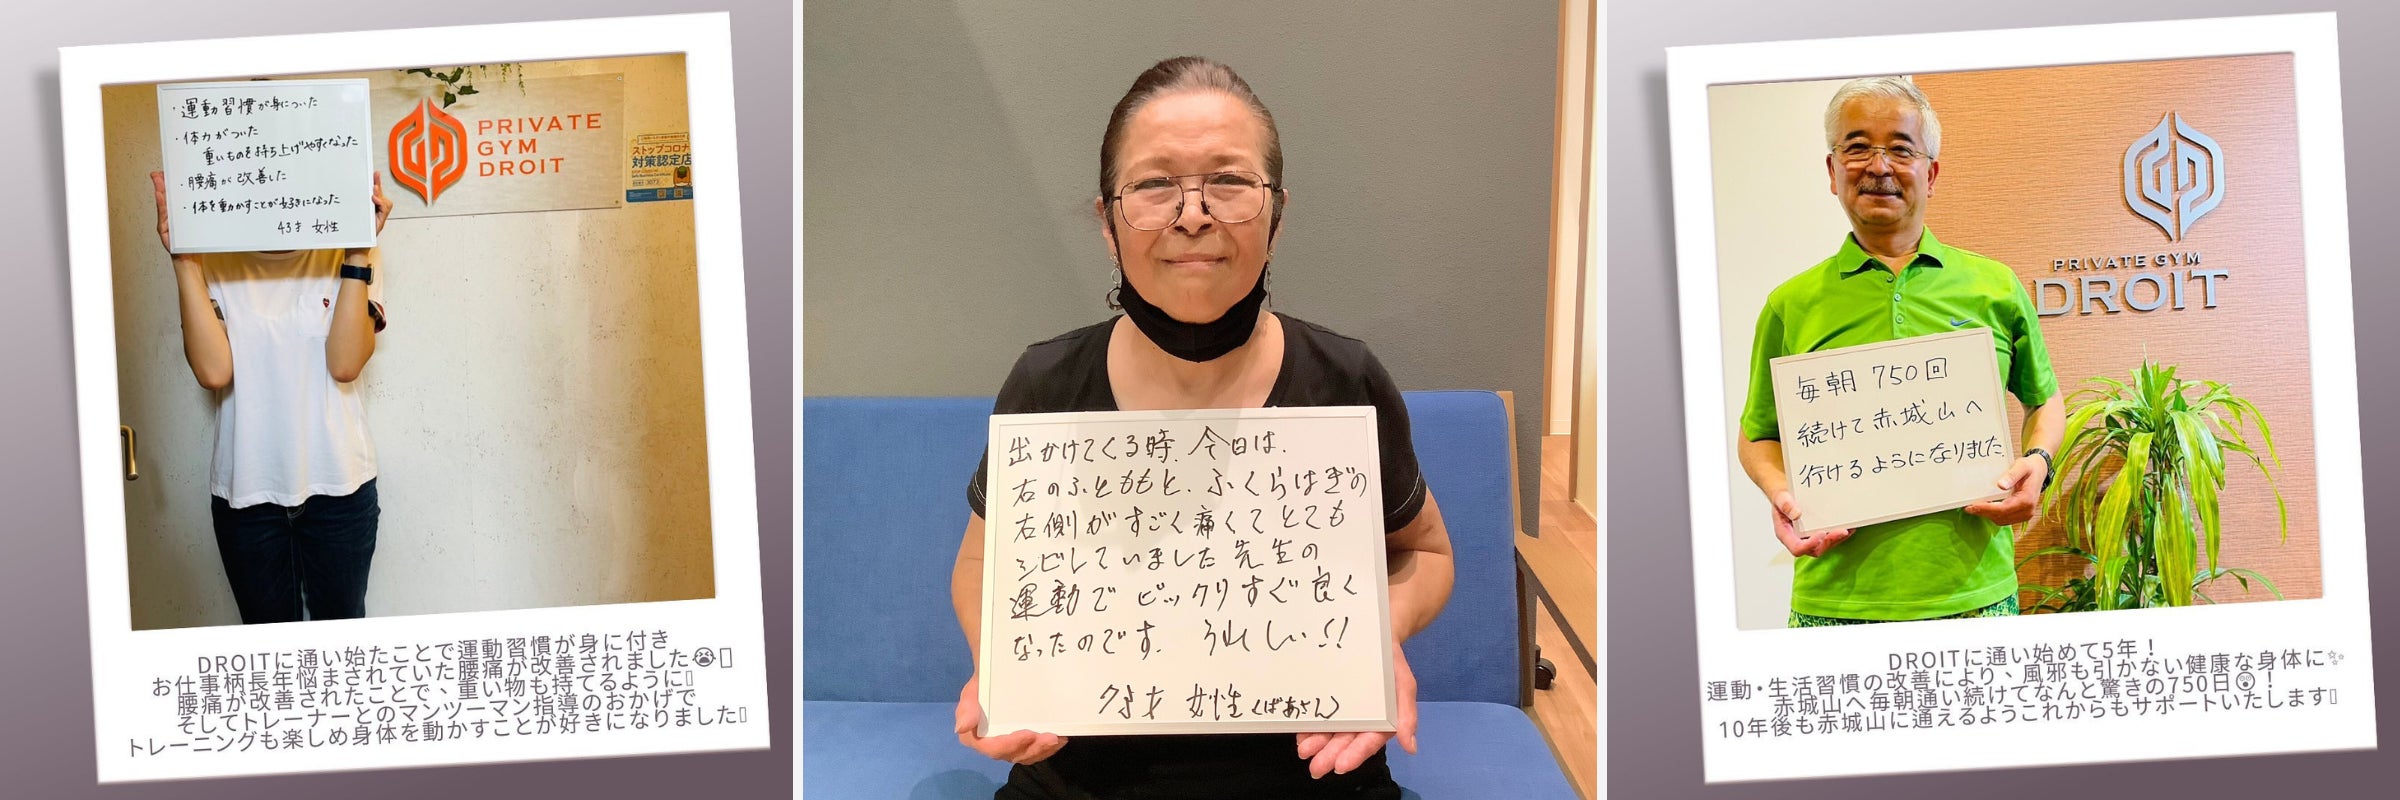 ・運動習慣が身についた
・体力がついた
重いものを持ち上げやすくなった
・腰痛が改善した
・体を動かすことが好きになった
43才 女性
PRIVATE
GYM
DROIT
ストップコロナ
対策認定店
DROITに通い始たことで運動習慣が身に付き
お仕事柄長年悩まされていた腰痛が改善されました😭
腰痛が改善されたことで、重い物も持てるように
そしてトレーナーとのマンツーマン指導のおかげで
トレーニングも楽しめ身体を動かすことが好きになりました
出かけてくる時、今日は、
右のふとももと、ふくらはぎの
右側がすごく痛くてとても
シビレていました先生の
運動でビックリすぐ良く
なったのです。うれしい!!
才 女性〈ばあさん〉
PRIVATE GYM
DROIT
毎朝 750回
続けて赤城山へ
行けるようになりました。
DROITに通い始めて5年!
運動・生活習慣の改善により、風邪も引かない健康な身体に✨
赤城山へ毎朝通い続けてなんと驚きの750日😲!
10年後も赤城山に通えるようこれからもサポートいたします